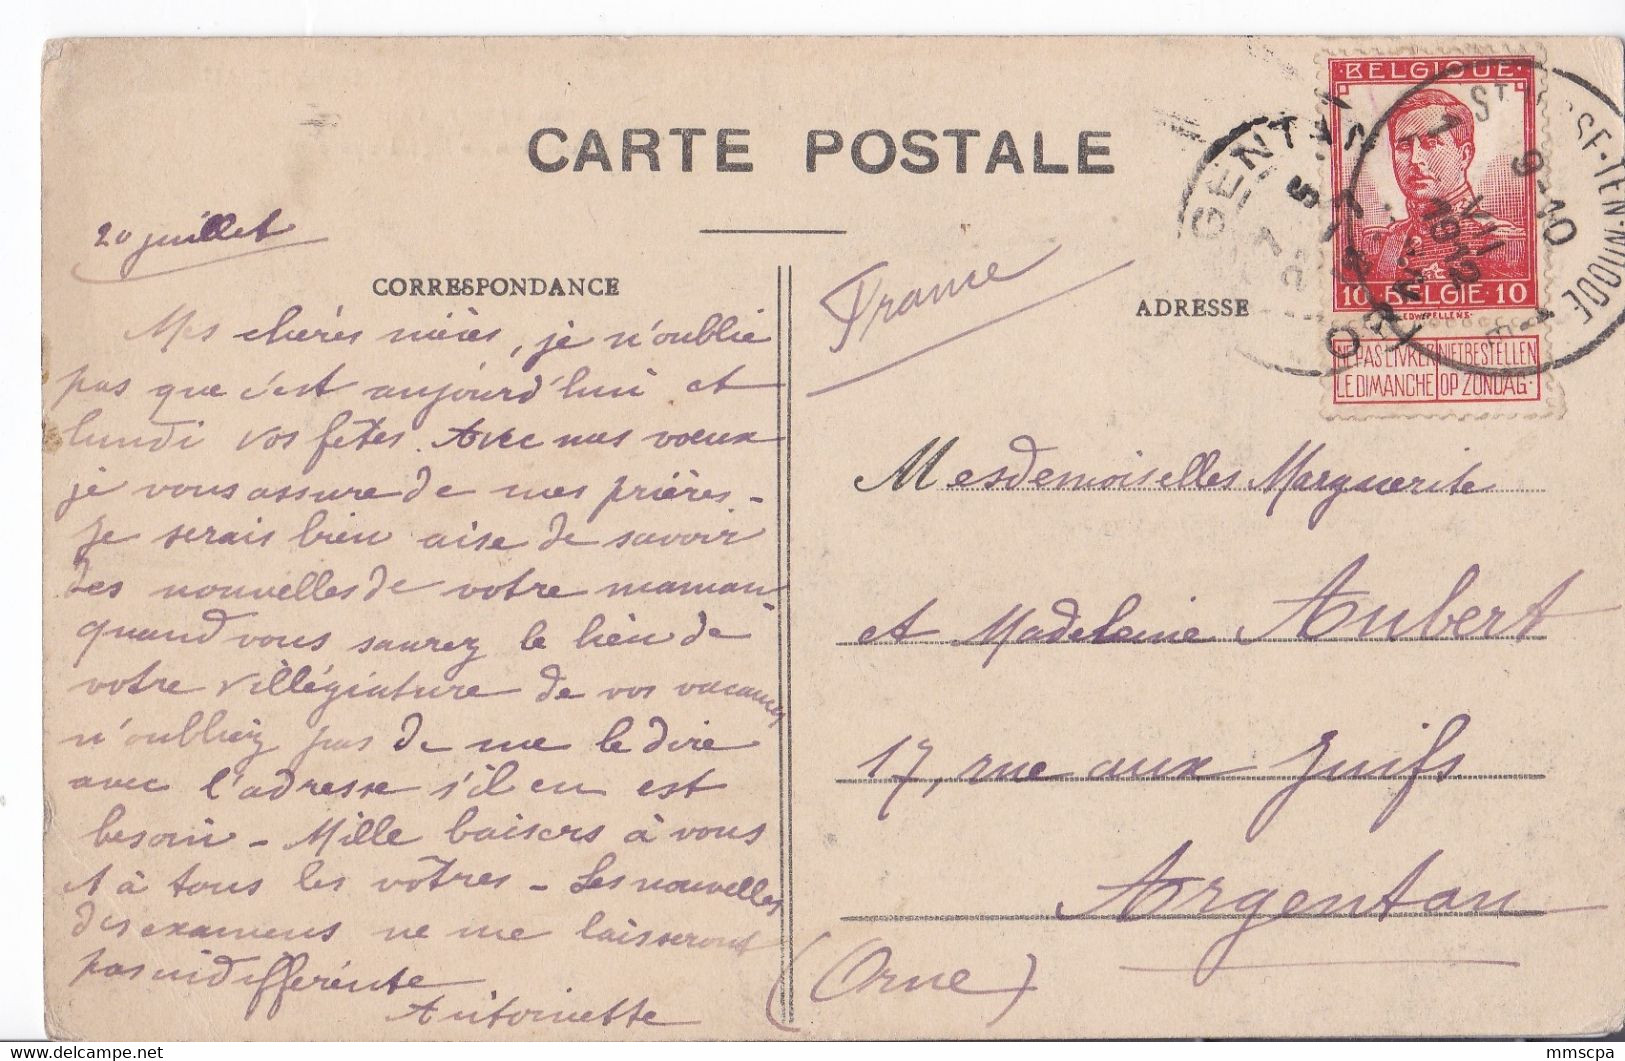 CARTE POSTALE
20 juillet
CORRESPONDANCE
Mes chères nièces, je n'oublie
pas que c'est aujourd'hui et
lundi vos fêtes. Avec mes voeux
je vous assure de mes prières -
Je serais bien aise de savoir
des nouvelles de votre maman
quand vous saurez le lieu de
votre villégiature de vos vacances
n'oubliez pas de me le dire
avec l'adresse s'il en est
besoin - Mille baisers à vous
et à tous les vôtres - Les nouvelles
des examens ne me laisseront
pas indifférente
Antoinette
France
ADRESSE
BELGIQUE
10 BELGIE 10
NE PAS LIVRER NIET BESTELLEN
LE DIMANCHE OP ZONDAG
9-10
VII
1912
Mesdemoiselles Marguerite
et Madeleine Aubert
17, rue aux Juifs
Argentan
(Orne)
www.delcampe.net
mmscpa